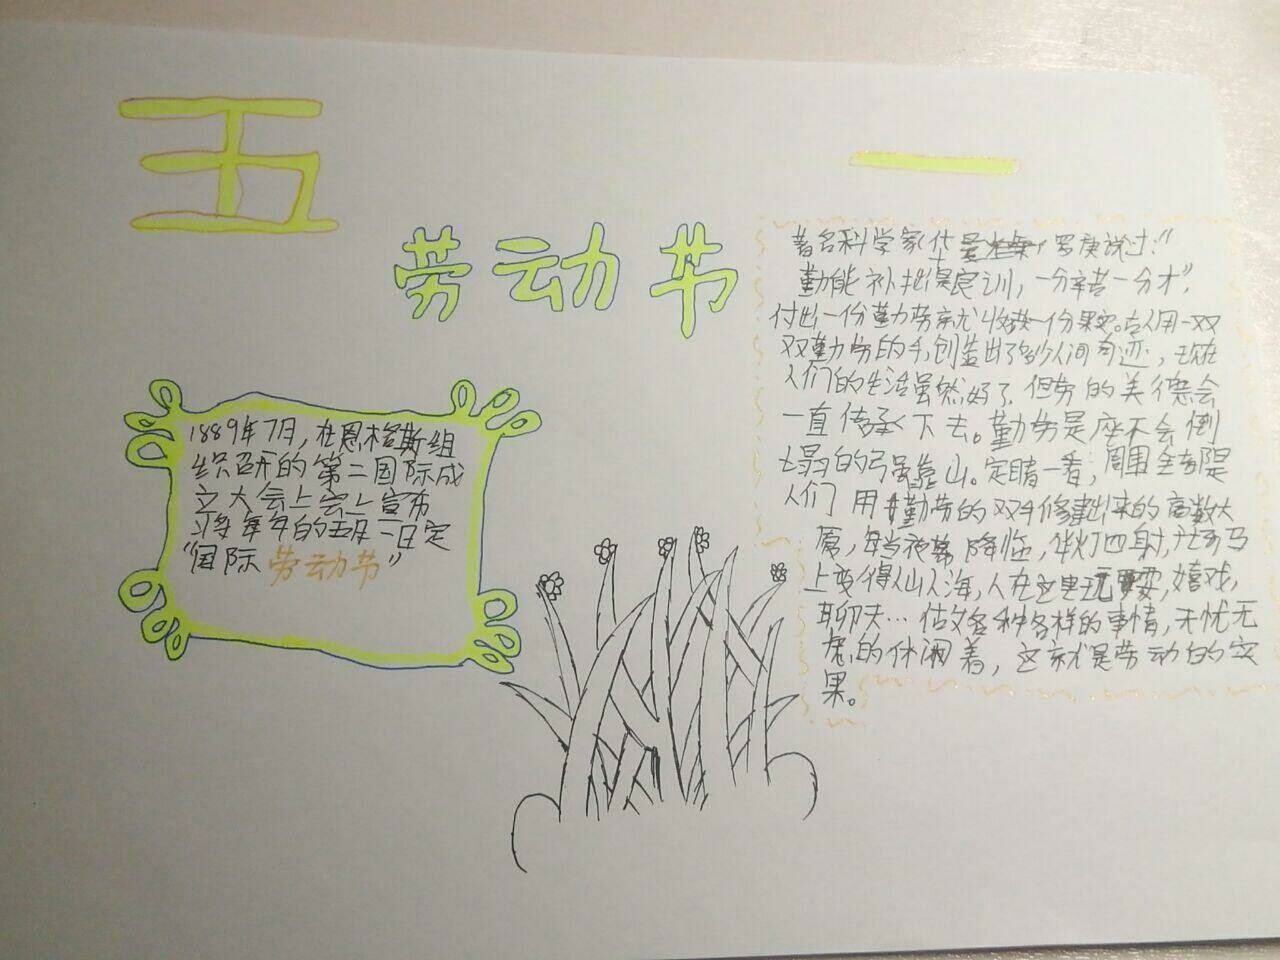 五一
劳动节
1889年7月,在恩格斯组
织召开的第二国际成
立大会上会上宣布
将每年的五月一日定
“国际劳动节”
著名科学家华 罗庚说过:“
勤能补拙是良训,一分辛苦一分才”,
付出一份勤劳就收获一份果实。古人用一双
双勤劳的手,创造出了多少人间奇迹,现在
人们的生活虽然好了但劳的美德会
一直传承下去。勤劳是座不会倒
塌的 靠山。定睛一看,周围全都是
人们用勤劳的双手修建出来的高数大
厦,每当夜幕降临,华灯四射,广场马
上变得人山人海,人在这里玩耍,嬉戏,
聊天…做各种各样的事情,无忧无
虑的休闲着,这就是劳动的实
果。